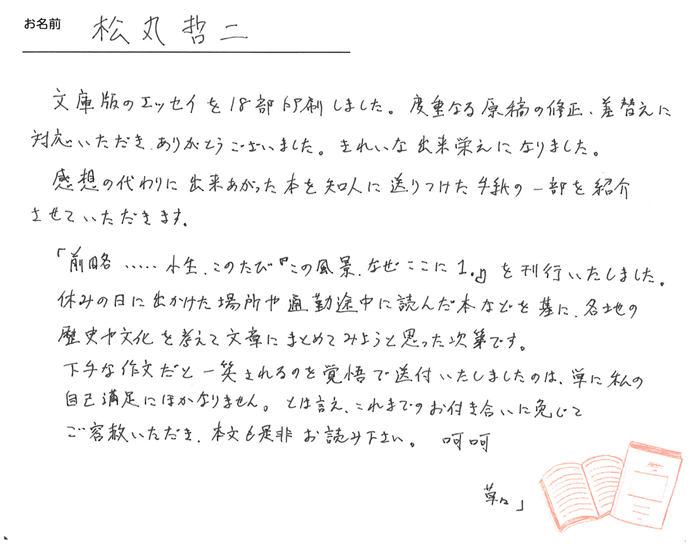 お名前 松丸哲二
文庫版のエッセイを18部印刷しました。度重なる原稿の修正、差替えに
対応いただき、ありがとうございました。きれいな出来栄えになりました。
感想の代わりに出来あがった本を知人に送りつけた手紙の一部を紹介
させていただきます。
「前略 ..... 小生、このたび『この風景、なぜここに 1.』を刊行いたしました。
休みの日に出かけた場所や通勤途中に読んだ本などを基に、各地の
歴史や文化を考えて文章にまとめてみようと思った次第です。
下手な作文だと一笑されるのを覚悟で送付いたしましたのは、単に私の
自己満足にほかなりません。とは言え、これまでのお付き合いに免じて
ご容赦いただき、本文も是非お読み下さい。 呵呵
草々」